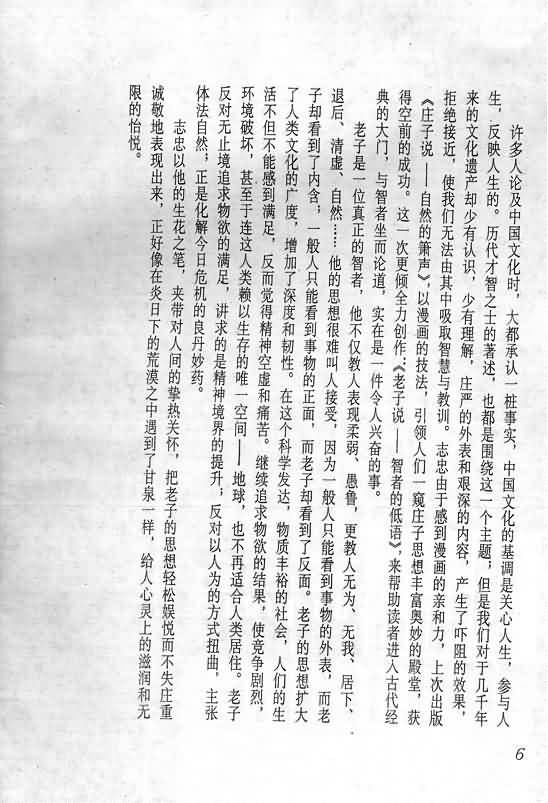 许多人论及中国文化时，大都承认一桩事实，中国文化的基调是关心人生，参与人
生，反映人生的。历代才智之士的著述，也都是围绕这一个主题，但是我们对于几千年
来的文化遗产却少有认识，少有理解，庄严的外表和艰深的内容，产生了吓阻的效果，
拒绝接近，使我们无法由其中吸取智慧与教训。志忠由于感到漫画的亲和力，上次出版
《庄子说——自然的箫声》，以漫画的技法，引领人们一窥庄子思想丰富奥妙的殿堂，获
得空前的成功。这一次更倾全力创作：《老子说——智者的低语》，来帮助读者进入古代经
典的大门，与智者坐而论道，实在是一件令人兴奋的事。
老子是一位真正的智者，他不仅教人表现柔弱、愚鲁，更教人无为、无我、居下、
退后、清虚、自然……他的思想很难叫人接受，因为一般人只能看到事物的外表，而老
子却看到了内含，一般人只能看到事物的正面，而老子却看到了反面。老子的思想扩大
了人类文化的广度，增加了深度和韧性。在这个科学发达，物质丰裕的社会，人们的生
活不但不能感到满足，反而觉得精神空虚和痛苦。继续追求物欲的结果，使竞争剧烈，
环境破坏，甚至于连这人类赖以生存的唯一空间——地球，也不再适合人类居住。老子
反对无止境追求物欲的满足，讲求的是精神境界的提升；反对以人为的方式扭曲，主张
体法自然；正是化解今日危机的良丹妙药。
志忠以他的生花之笔，夹带对人间的挚热关怀，把老子的思想轻松娱悦而不失庄重
诚敬地表现出来，正好像在炎日下的荒漠之中遇到了甘泉一样，给人心灵上的滋润和无
限的怡悦。
6